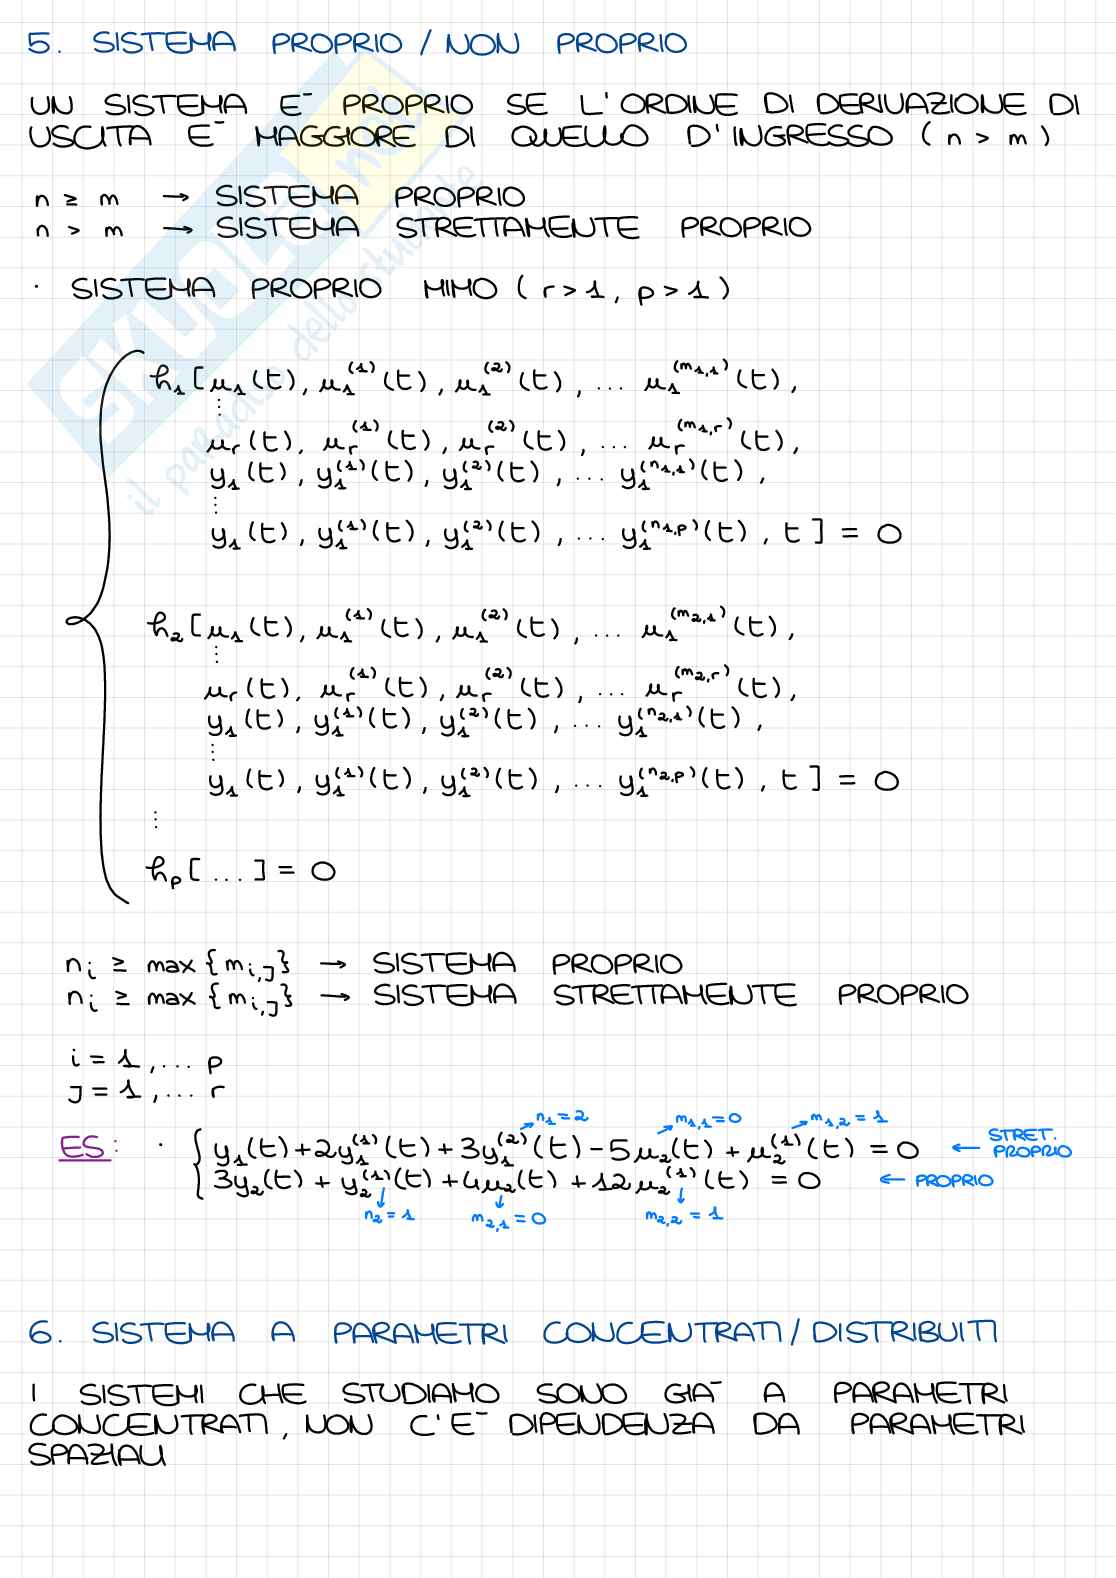 5. SISTEMA PROPRIO / NON PROPRIO
UN SISTEMA E¯ PROPRIO SE L'ORDINE DI DERIVAZIONE DI
USCITA E¯ MAGGIORE DI QUELLO D'INGRESSO ( n > m )
n ≥ m → SISTEMA PROPRIO
n > m → SISTEMA STRETTAMENTE PROPRIO
· SISTEMA PROPRIO MIMO ( r > 1 , p > 1 )
h₁ [ u₁(t), u₁^(1)(t), u₁^(2)(t), ... u₁^(m₁,₁)(t),
⋮
u_r(t), u_r^(1)(t), u_r^(2)(t), ... u_r^(m₁,r)(t),
y₁(t), y₁^(1)(t), y₁^(2)(t), ... y₁^(n₁,₁)(t),
⋮
y₁(t), y₁^(1)(t), y₁^(2)(t), ... y₁^(n₁,p)(t), t ] = 0
h₂ [ u₁(t), u₁^(1)(t), u₁^(2)(t), ... u₁^(m₂,₁)(t),
⋮
u_r(t), u_r^(1)(t), u_r^(2)(t), ... u_r^(m₂,r)(t),
y₁(t), y₁^(1)(t), y₁^(2)(t), ... y₁^(n₂,₁)(t),
⋮
y₁(t), y₁^(1)(t), y₁^(2)(t), ... y₁^(n₂,p)(t), t ] = 0
⋮
h_p [ ... ] = 0
n_i ≥ max { m_i,J } → SISTEMA PROPRIO
n_i ≥ max { m_i,J } → SISTEMA STRETTAMENTE PROPRIO
i = 1 , ... p
J = 1 , ... r
n₁ = 2 m₁,₁ = 0 m₁,₂ = 1
ES: · y₁(t) + 2y₁^(1)(t) + 3y₁^(2)(t) - 5u₂(t) + u₂^(1)(t) = 0 ← STRET. PROPRIO
3y₂(t) + y₂^(1)(t) + 4u₂(t) + 12u₂^(1)(t) = 0 ← PROPRIO
n₂ = 1 m₂,₁ = 0 m₂,₂ = 1
6. SISTEMA A PARAMETRI CONCENTRATI / DISTRIBUITI
I SISTEMI CHE STUDIAMO SONO GIA¯ A PARAMETRI
CONCENTRATI, NON C'E¯ DIPENDENZA DA PARAMETRI
SPAZIALI
SKUOLA.net
il paradiso dello studente